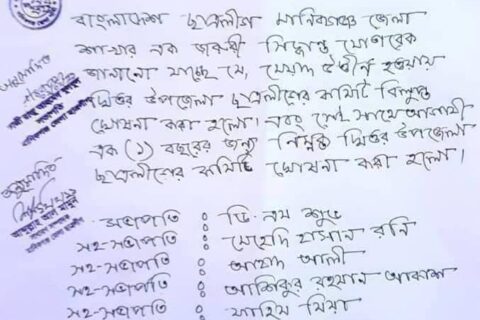 বাংলাদেশ ছাত্রলীগ মানিকগঞ্জ জেলা
শাখার এক জরুরী সিদ্ধান্ত মোতাবেক
জানানো যাচ্ছে যে, মেয়াদ উত্তীর্ন হওয়ায়
ঘিওর উপজেলা ছাত্রলীগের কমিটি বিলুপ্ত
ঘোষনা করা হলো। এবং সেই সাথে আগামী
এক (১) বছরের জন্য নিম্নোক্ত ঘিওর উপজেলা
ছাত্রলীগের কমিটি ঘোষনা করা হলো।
অনুমোদিত
অনুমোদিত
সভাপতি : ভি. এম শুভ
সহ-সভাপতি : মেহেদি হাসান রনি
সহ-সভাপতি : আযাদ আলী
সহ-সভাপতি : আশিকুর রহমান আকাশ
সহ-সভাপতি : ফাহিম মিয়া